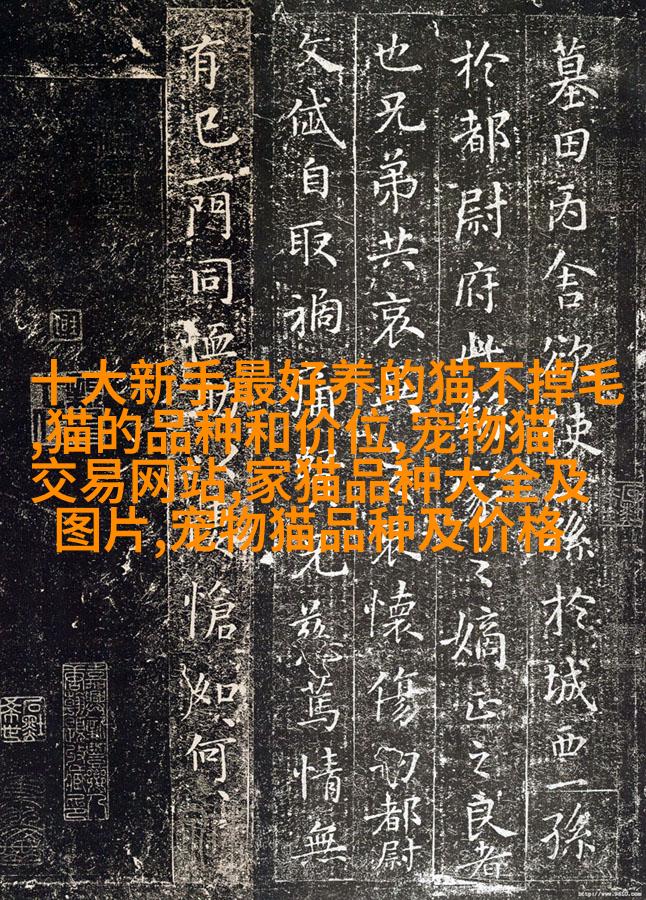 墓田丙舍欲使孫於城西一孫
於都尉府此繇家之嫡正之良者
也兄弟共哀哀懷傷切都尉
文岱自取禍痛兄慈篤情無
有已一門同恤助愴如何
十大新手最好养的猫不掉毛
,猫的品种和价位,宠物猫
交易网站,家猫品种大全及
图片,宠物猫品种及价格
http://www.9610.com